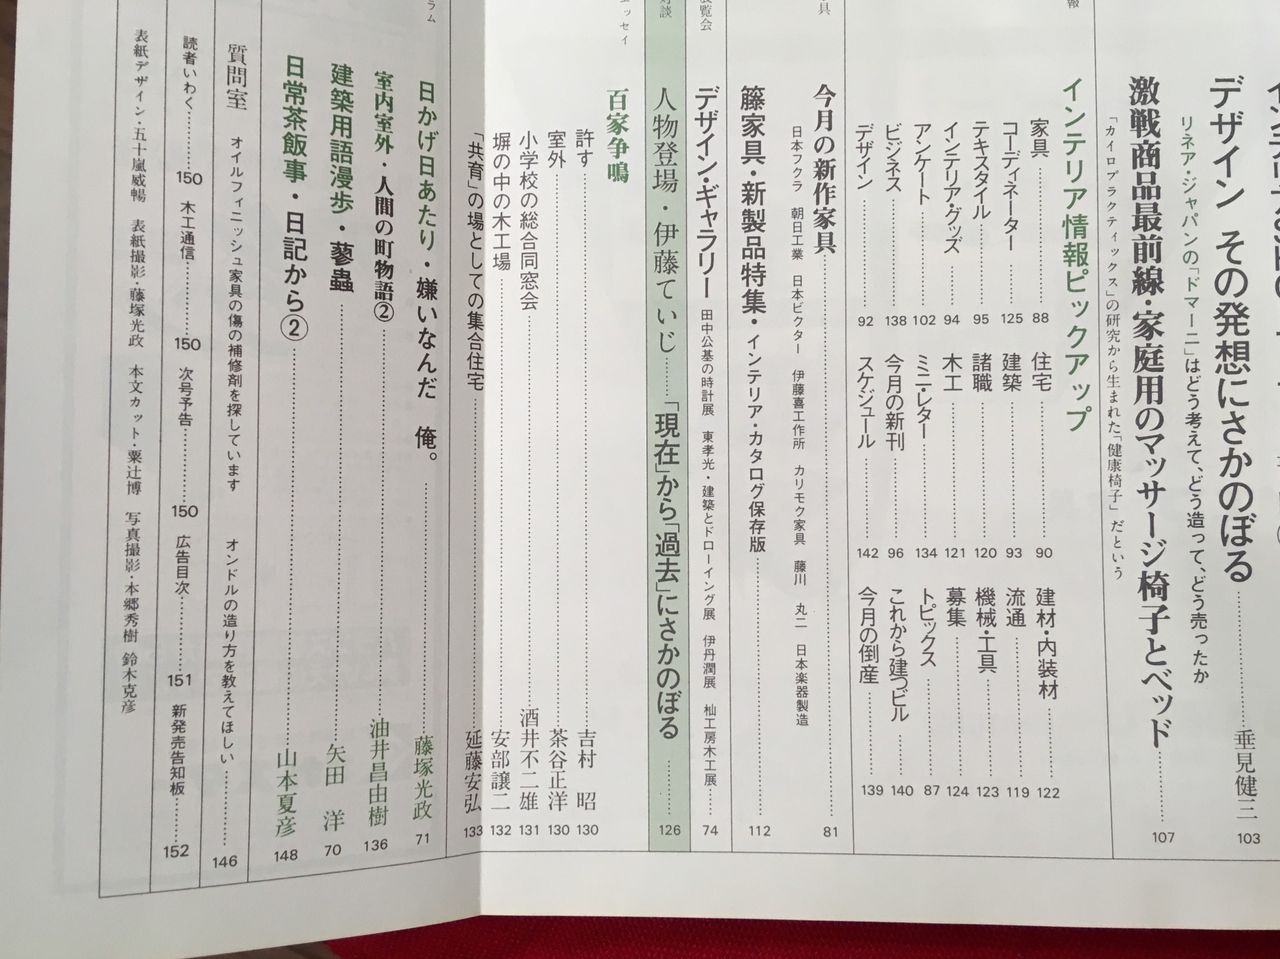 デザイン その発想にさかのぼる……垂見健三 103
リネア・ジャパンの「ドマーニ」はどう考えて、どう造って、どう売ったか
激戦商品最前線・家庭用のマッサージ椅子とベッド……107
「カイロプラクティックス」の研究から生まれた「健康椅子」だという
報
インテリア情報ピックアップ
家具……88 住宅……90 建材・内装材……122
コーディネーター……125 建築……93 流通……119
テキスタイル……95 諸職……120 機械・工具……123
インテリア・グッズ 94 木工……121 募集……124
アンケート……102 ミニ・レター……134 トピックス……87
ビジネス……138 今月の新刊……96 これから建つビル……140
デザイン……92 スケジュール……142 今月の倒産……139
具
今月の新作家具……81
日本フクラ 朝日工業 日本ビクター 伊藤喜工作所 カリモク家具 藤川 丸二 日本楽器製造
籐家具・新製品特集・インテリア・カタログ保存版……112
展覧会
デザイン・ギャラリー 田中公基の時計展 東孝光・建築とドローイング展 伊丹潤展 杣工房木工展……74
対談
人物登場・伊藤ていじ……「現在」から「過去」にさかのぼる……126
エッセイ
百家争鳴
許す……吉村 昭 130
室外……茶谷正洋 130
小学校の総合同窓会……酒井不二雄 131
塀の中の木工場……安部譲二 132
「共育」の場としての集合住宅……延藤安弘 133
ラム
日かげ日あたり・嫌いなんだ 俺。……藤塚光政 71
室内室外・人間の町物語②……油井昌由樹 136
建築用語漫歩・蓼蟲……矢田 洋 70
日常茶飯事・日記から②……山本夏彦 148
質問室 オイルフィニッシュ家具の傷の補修剤を探しています オンドルの造り方を教えてほしい……146
読者いわく……150 木工通信……150 次号予告……150 広告目次……151 新発売告知板……152
表紙デザイン・五十嵐威暢 表紙撮影・藤塚光政 本文カット・粟辻博 写真撮影・本郷秀樹 鈴木克彦